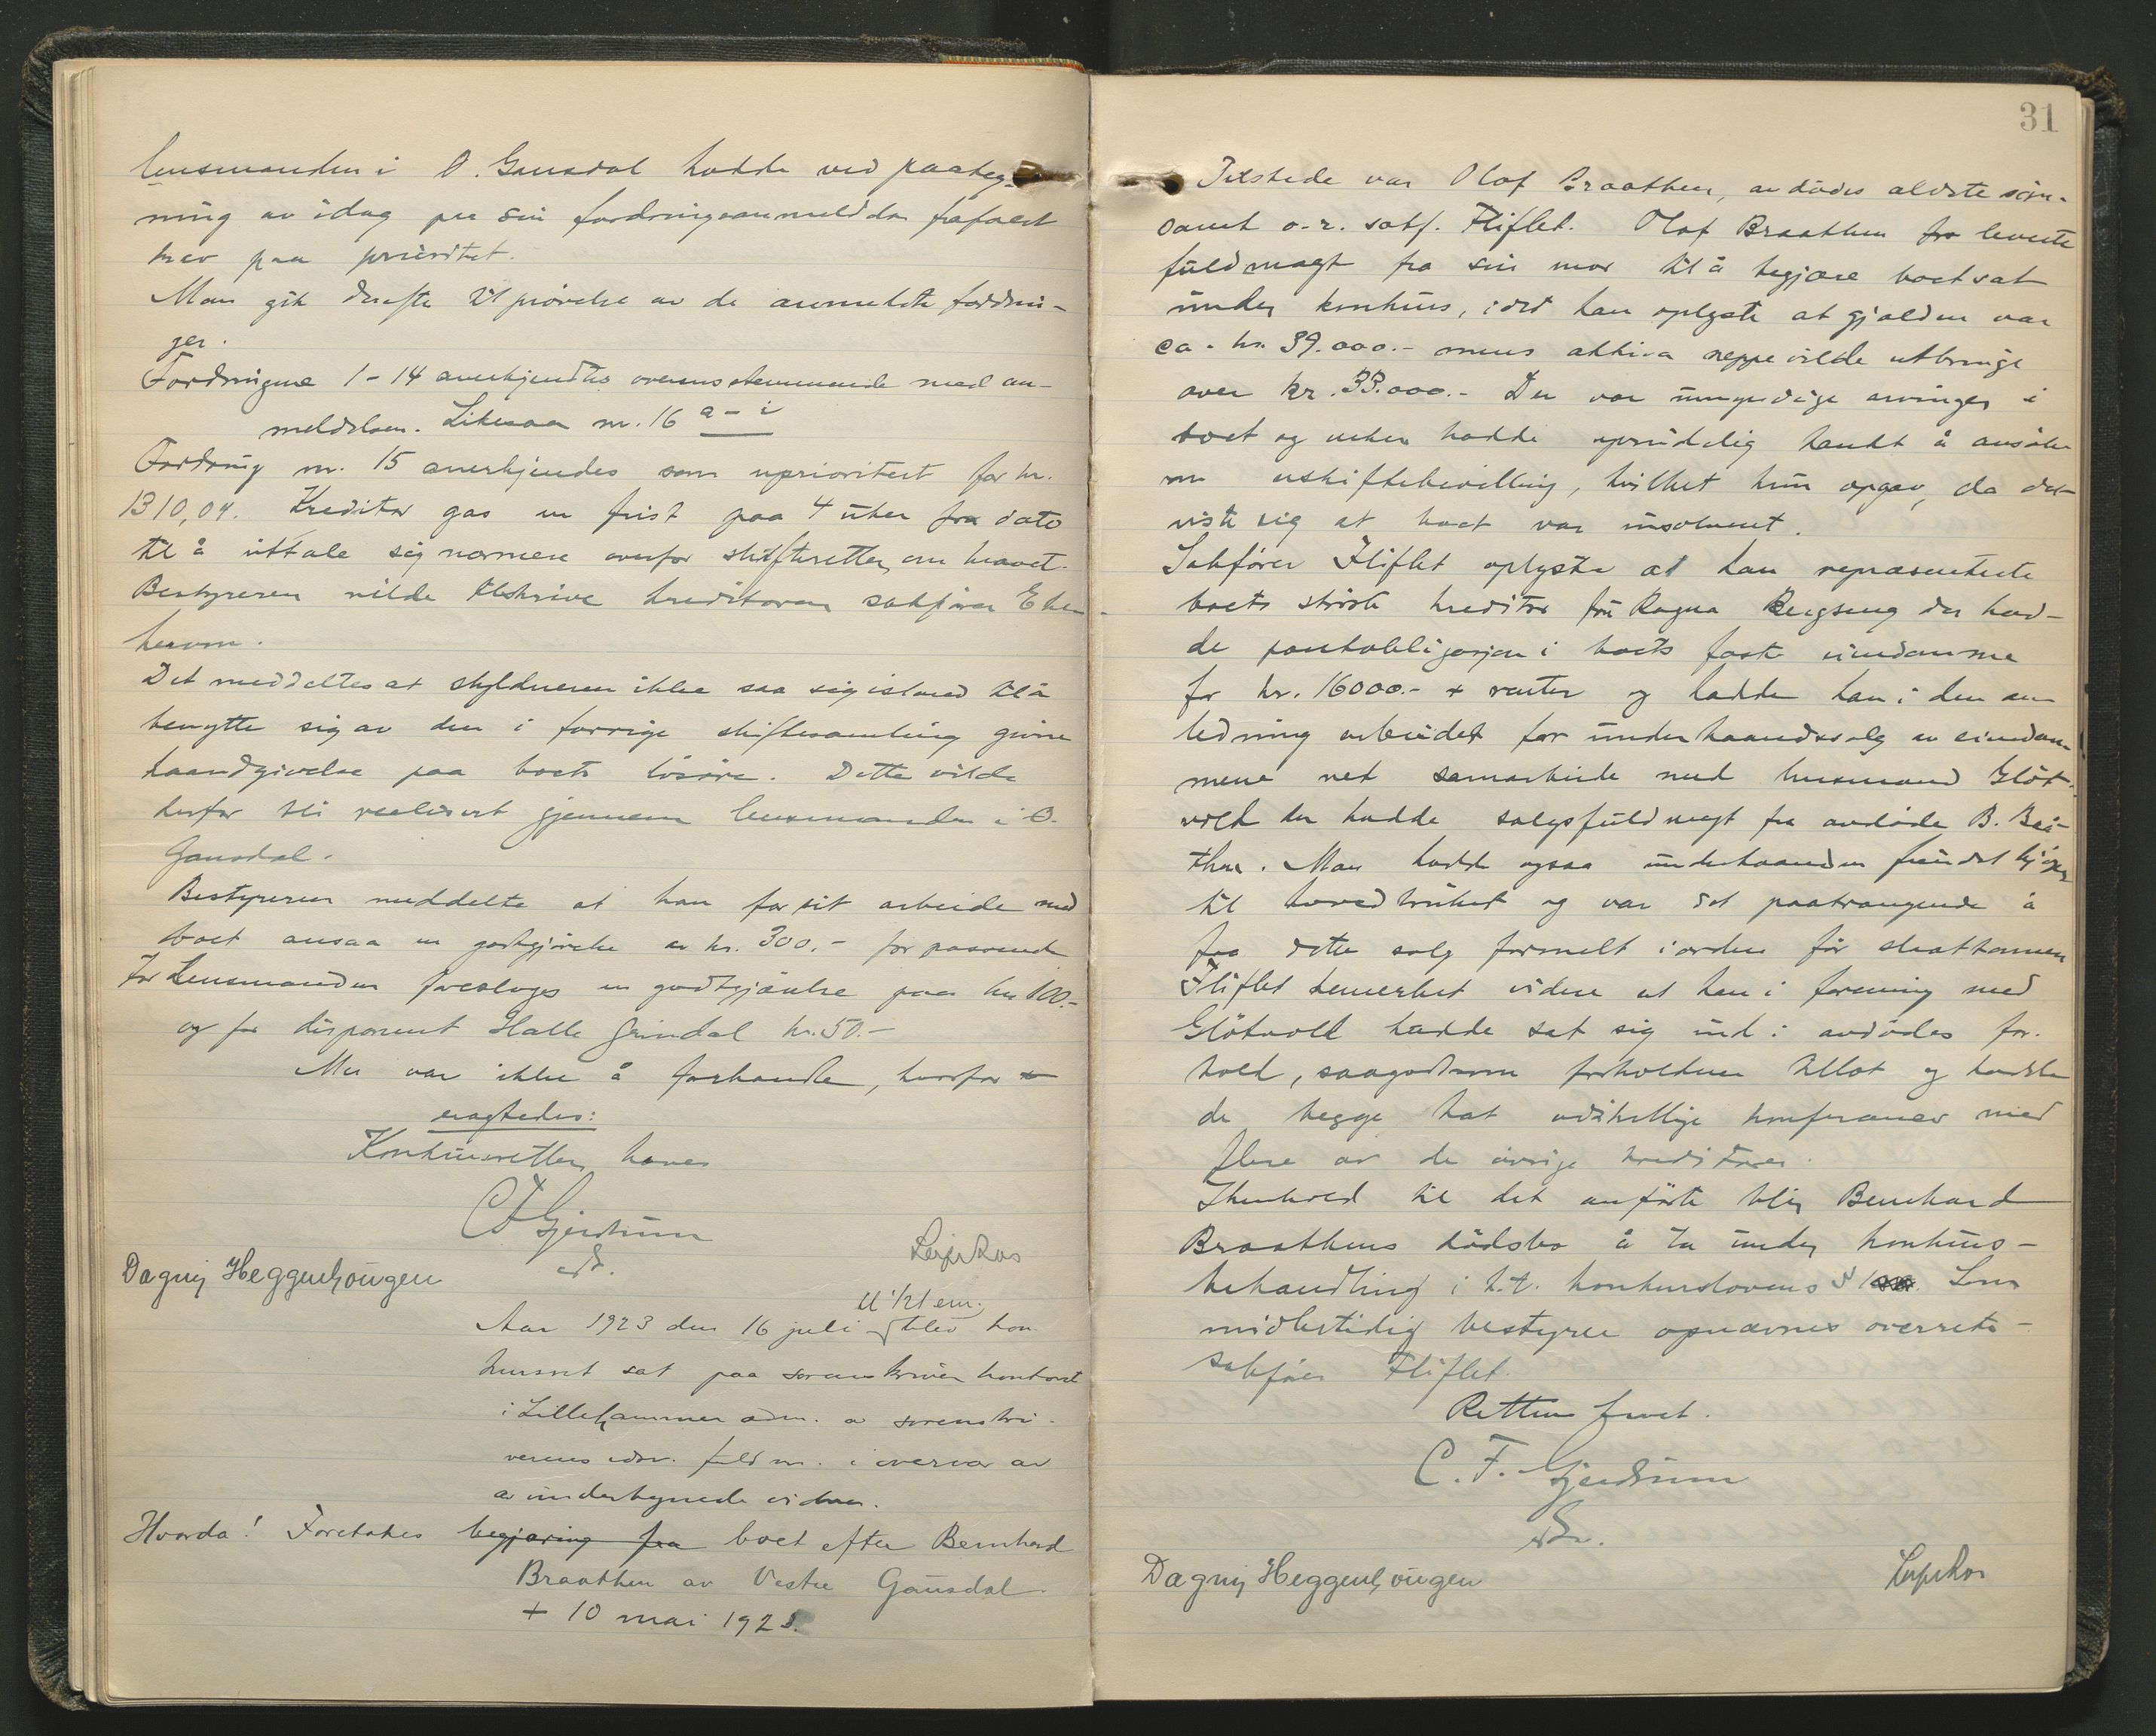 lensmanden i Ø. Gausdal hadde ved paateg-
ning av idag paa sin fordringsanmeldelse frafaldt
krav paa prioritet.
Man gik derefter til prøvelse av de anmeldte fordrin-
ger.
Fordringene 1-14 anerkjendtes overensstemmende med an-
meldelsen. Likesaa nr. 16 a-i
Fordring nr. 15 anerkjendes som uprioritert for kr.
1310,04. Kreditor gas en frist paa 4 uker fra dato
til å uttale sig nærmere overfor skifteretten om kravet.
Bestyreren vilde tilskrive kreditoren sakfører
herom.
Det meddeltes at skyldneren ikke saa sig istand til å
benytte sig av den i forrige skiftesamling givne
haandgivelse paa boets løsøre. Dette vilde
derfor bli realisert gjennem lensmanden i Ø.
Gausdal.
Bestyreren meddelte at han for sit arbeide med
boet ansaa en godtgjørelse av kr. 300.- for passende
For Lensmanden foresloges en godtgjørelse paa kr 100.-
og for disponent Halle Grindal kr. 50.-
Mer var ikke å forhandle, hvorfor
eragtedes:
Konkursretten hæves
C F Gjerdrum
edv.
Dagny Heggenhougen
Leif Ros
Aar 1923 den 16 juli kl 1/2 1 em. blev kon
kursret sat paa sorenskriverkontoret
i Lillehammer adm. av sorenskri-
verens edsv. fuldm. i overvær av
av undertegnede vidner.
Hvorda! Foretokes begjæring fra boet efter Bernhard
Braathen av Vestre Gausdal
+ 10 mai 1923.
31
Tilstede var Olaf Braathen, avdødes ældste søn.
samt o.r. sakf. Fliflet. Olaf Braathen fra leverte
fuldmagt fra sin mor til å begjære boet sat
under konkurs, idet han oplyste at gjælden var
ca. kr. 39.000.- mens aktiva neppe vilde utbringe
over kr. 33.000.- Der var umyndige arvinger i
boet og enken hadde oprindelig tænkt å ansøke
om uskiftebevilling, hvilket hun opgav, da det
viste sig at boet var insolvent.
Sakfører Fliflet oplyste at han repræsenterte
boets største kreditor fru Ragna Bergseng der had-
de pantobligasjon i boets faste eiendomme
for kr. 16000.- + renter og hadde han i den an
ledning arbeidet for underhaandssalg av eiendom
mene ved samarbeide med lensmand Gløt-
vold der hadde salgsfuldmagt fra avdøde B. Braa-
then. Man hadde ogsaa underhaanden fundet kjøper
til hovedbruket og var det paatrængende å
faa dette salg formelt i orden før slaattonnen
Fliflet bemerket videre at han i forening med
Gløtvold hadde sat sig ind i avdødes for-
hold, saagodtsom forholdene tillot og hadde
de begge hat adskillige konferanser med
flere av de øvrige kreditorer.
I henhold til det anførte blir Bernhard
Braathens dødsbo å ta under konkurs-
behandling i h.t. konkurslovens § 1 Som
midlertidig bestyrer opnævnes overrets-
sakfører Fliflet.
Retten hævet.
C. F. Gjerdrum
edv.
Dagny Heggenhougen
Leif Ros